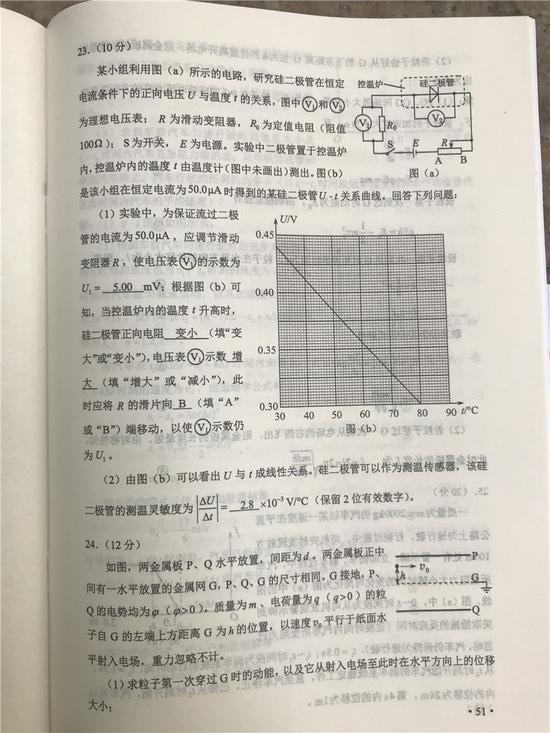 23.（10分）
某小组利用图（a）所示的电路，研究硅二极管在恒定
电流条件下的正向电压U与温度t的关系，图中V₁和V₂
为理想电压表；R为滑动变阻器，R₀为定值电阻（阻值
100Ω）；S为开关，E为电源。实验中二极管置于控温炉
内，控温炉内的温度t由温度计（图中未画出）测出。图（b）
是该小组在恒定电流为50.0μA时得到的某硅二极管U-t关系曲线。回答下列问题：
控温炉
硅二极管
V₁
R₀
V₂
S
E
R
A
B
图（a）
（1）实验中，为保证流过二极
管的电流为50.0μA，应调节滑动
变阻器R，使电压表V₁的示数为
U₁= 5.00 mV；根据图（b）可
知，当控温炉内的温度t升高时，
硅二极管正向电阻 变小 （填“变
大”或“变小”），电压表V₁示数 增
大 （填“增大”或“减小”），此
时应将R的滑片向 B （填“A”
或“B”）端移动，以使V₁示数仍
为U₁。
U/V
0.45
0.40
0.35
0.30
30 40 50 60 70 80 90 t/°C
图（b）
（2）由图（b）可以看出U与t成线性关系。硅二极管可以作为测温传感器，该硅
二极管的测温灵敏度为|ΔU/Δt|= 2.8 ×10⁻³ V/°C（保留2位有效数字）。
24.（12分）
如图，两金属板P、Q水平放置，间距为d。两金属板正中
间有一水平放置的金属网G，P、Q、G的尺寸相同。G接地，P、
Q的电势均为φ（φ>0）。质量为m、电荷量为q（q>0）的粒
子自G的左端上方距离G为h的位置，以速度v₀平行于纸面水
平射入电场，重力忽略不计。
P
v₀
h
G
Q
（1）求粒子第一次穿过G时的动能，以及它从射入电场至此时在水平方向上的位移
大小；
·51·